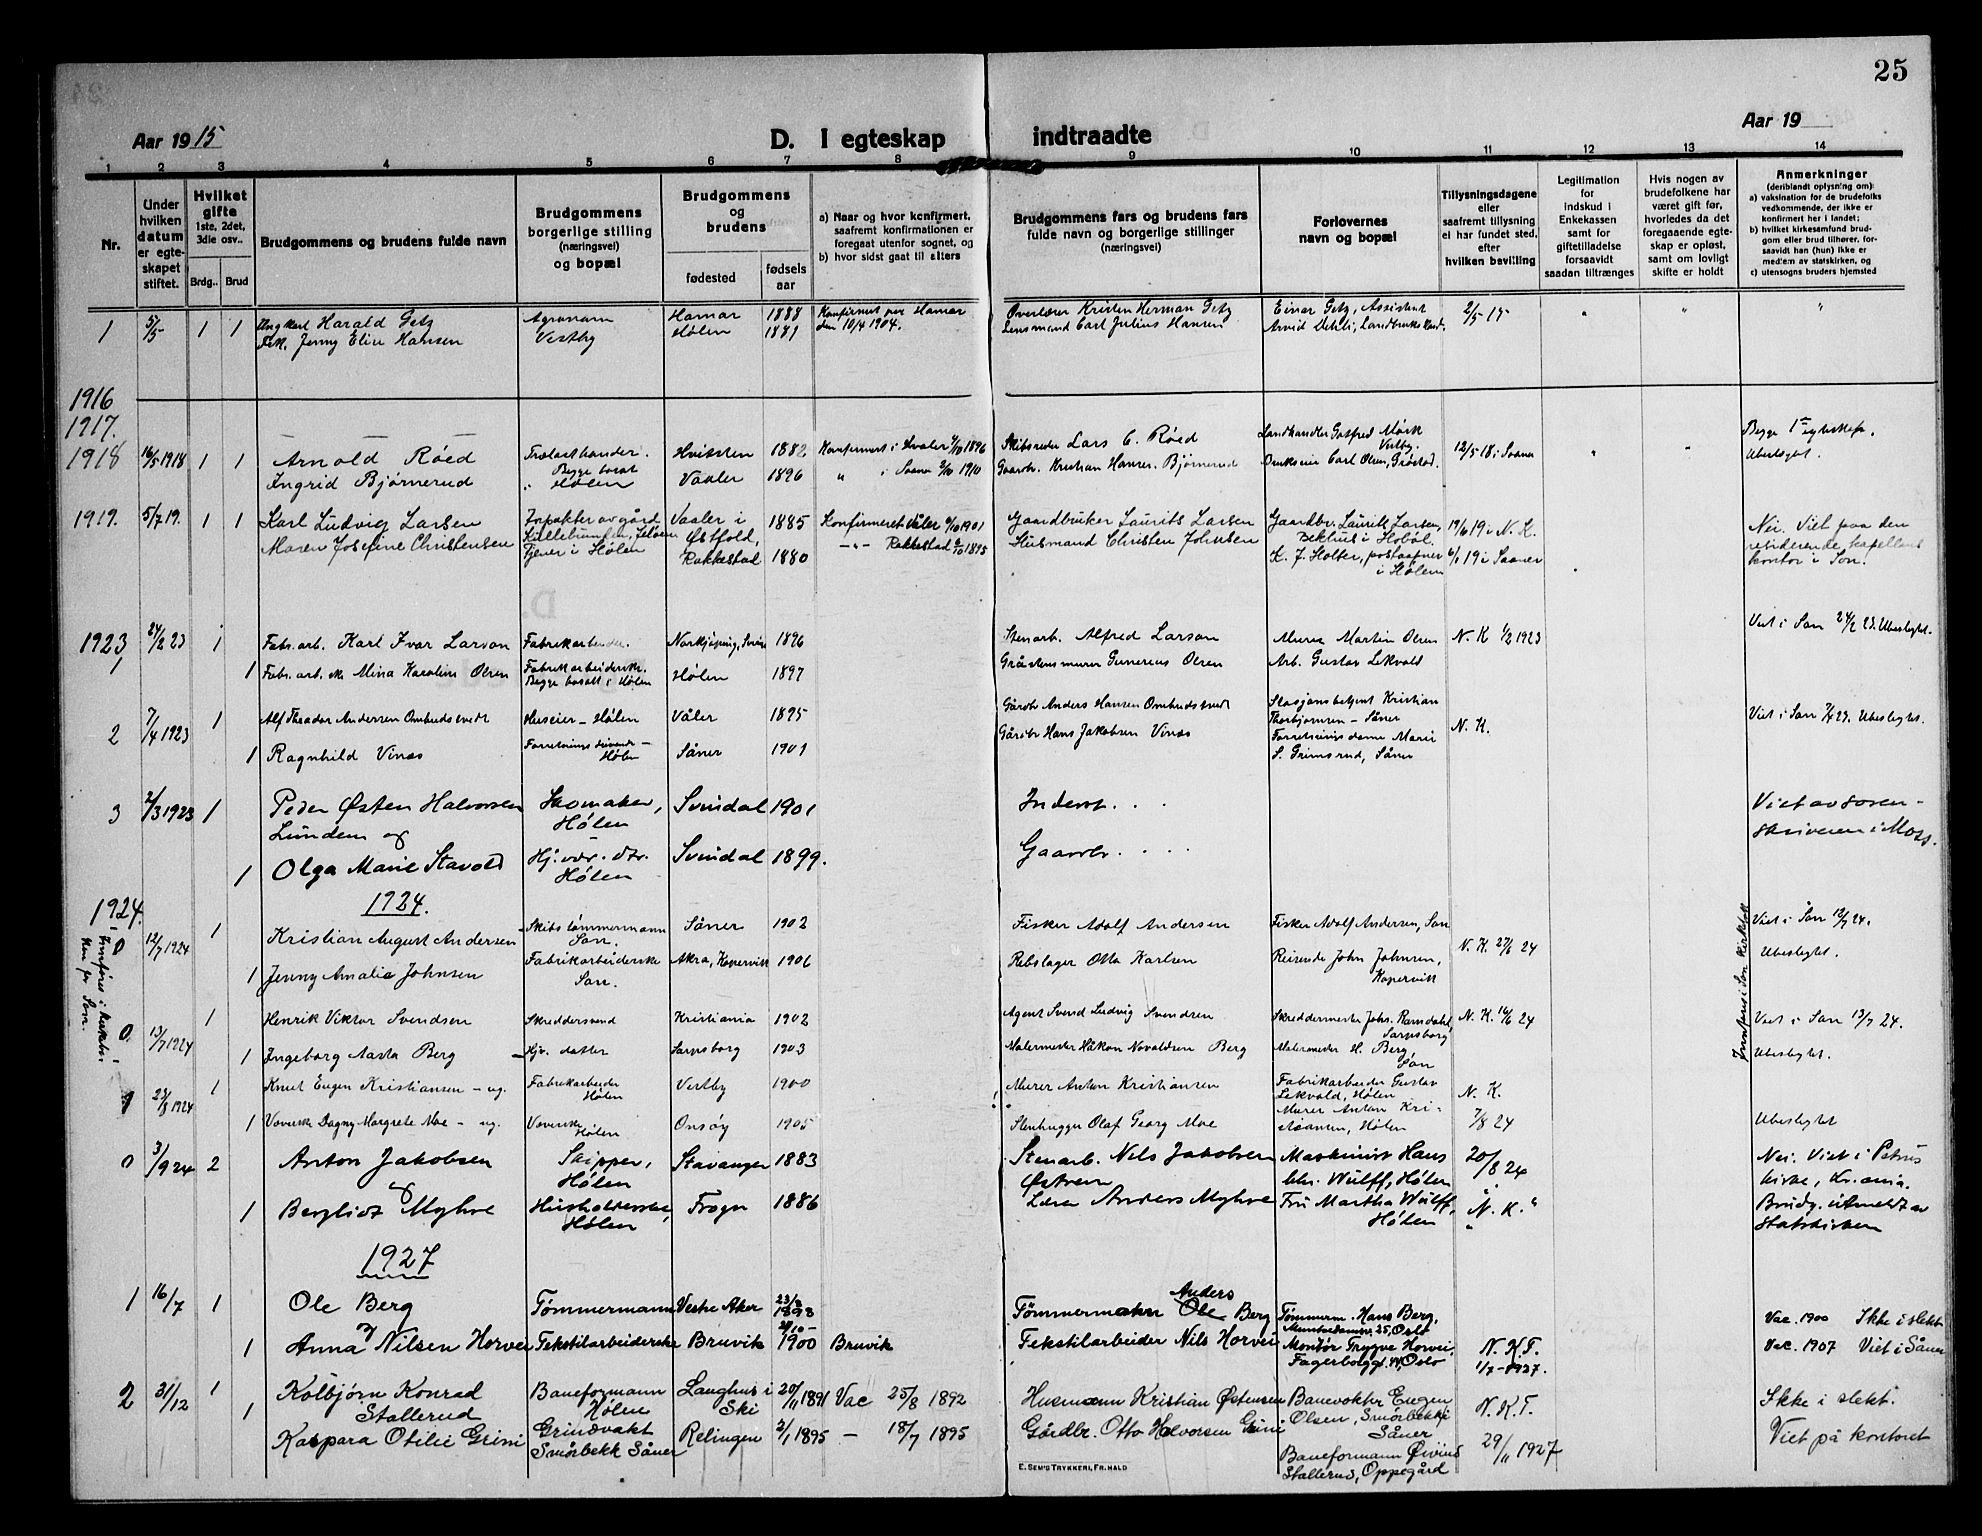 25
Aar 1915
D. I egteskap indtraadte
Aar 19
1 2 3 4 5 6 7 8 9 10 11 12 13 14
Nr.
Under hvilken datum er egteskapet stiftet.
Hvilket gifte 1ste, 2det, 3die osv..
Brdg.. Brud
Brudgommens og brudens fulde navn
Brudgommens borgerlige stilling (næringsvei) og bopæl
Brudgommens og brudens
fødested
fødsels aar
a) Naar og hvor konfirmert, saafremt konfirmationen er foregaat utenfor sognet, og
b) hvor sidst gaat til alters
Brudgommens fars og brudens fars fulde navn og borgerlige stillinger (næringsvei)
Forlovernes navn og bopæl
Tillysningsdagene eller saafremt tillysning ei har fundet sted, efter hvilken bevilling
Legitimation for indskud i Enkekassen samt for giftetilladelse forsaavidt saadan tiltrænges
Hvis nogen av brudefolkene har været gift før, hvorledes da det foregaaende egteskap er opløst, samt om lovligt skifte er holdt
Anmerkninger (deriblandt oplysning om):
a) vaksination for de brudefolks vedkommende, der ikke er konfirmert her i landet;
b) hvilket kirkesamfund brudgom eller brud tilhører, forsaavidt han (hun) ikke er medlem av statskirken, og
c) utensogns bruders hjemsted
1 5/5 1 1 Ungkarl Harald Getz Agronom Hamar 1888 Konfirmert por Hamar Overlærer Kristen Herman Getz Einar Getz, Assistent 2/5 15 " " "
Frk. Jenny Elise Hansen Vestby Hølen 1881 den 10/4 1904. Lensmand Carl Julius Hansen Arvid Dehli, Landbrukskand.
1916
1917. — — —
1918 16/5 1918 1 1 Arnold Røed Trælasthandler. Hvitsten 1882 Konfirmert i Vaaler 4/10 1896 Skibsreder Lars C. Røed Landhandler Gotfred Mørk Vestby. 12/5 18 i Saaner " " Begge 1ste egteskap.
Ingrid Bjørnerud Begge bosat Hølen Vaaler 1896 " i Saaner 9/10 1910 Gaardbr. Kristian Hansen Bjørnerud Brukseier Carl Olsen, Grøstad. Ubeslegtet.
1919. 5/7 19. 1 1 Karl Ludvig Larsen Inspektør av gård Vaaler i Østfold, 1885 Konfirmeret Våler 6/10 1901 Gaardbruker Laurits Larsen Gaardbr. Laurits Larsen, Bekhus i Hobøl. 19/6 19 i N. K. Nei. Viet paa den
Maren Josefine Christensen Kullebunden, Jeløen Tjener i Hølen Rakkestad 1880 —"— Rakkestad 6/10 1895 Husmand Christen Johnsen K. J. Holter, postaapner i Hølen 6/1 19 i Saaner residerende kapellans kontor i Son.
1923 24/2 23 1 Fabr. arb. Karl Ivar Larson Fabrikarbeider. Norkjøping, Sverige 1896 Stenarb. Alfred Larson Murer Martin Olsen N. K 1/2 1923 Viet i Son 24/2 23. Ubeslegtet.
1 1 Fabr. arb. ske Mina Karoline Olsen Fabrikarbeiderske. Begge bosatt i Hølen Hølen 1897 Gråstensmurer Gunerius Olsen Arb. Gustav Lekvold
2 7/4 1923 1 Alf Theodor Andersen Ombudsvedt Huseier – Hølen Våler 1895 Gårdbr Anders Hansen Ombudsvedt Stasjonsbetjent Kristian Thorbjørnsen – Såner N. K. Viet i Son 7/4 23. Ubeslegtet.
1 Ragnhild Vinæs Forretningsdrivende – Hølen Såner 1901 Gårdbr Hans Jakobsen Vinæs Forretningsdame Marie S. Grimsrud, Såner
3 2/3 1923 1 Peder Østen Halvorsen Lunden og Skomaker, Hølen Svindal 1901 Inderst . . . Viet av soren-
1 Olga Marie Stavold Hj. vær. dtr. Hølen Svindal 1899. Gaardbr . . . . skriveren i Moss.
1924. 1924.
0 12/7 1924 1 Kristian August Andersen Skibstømmermann Son. Såner 1902 Fisker Adolf Andersen Fisker Adolf Andersen, Son N. K. 27/6 24 Viet i Son 12/7 24.
1 Jenny Amalie Johnsen Fabrikarbeiderske Son. Akra, Kopervik 1906 Rebslager Otto Karlsen Reisende John Johnsen, Kopervik Ubeslegtet.
0 13/7 1924 1 Henrik Viktor Svendsen Skreddersvend Kristiania 1902 Agent Svend Ludvig Svendsen Skreddermester Johs. Ramdahl, Sarpsborg N. K. 14/6 24 Viet i Son 13/7 24.
1 Ingeborg Aasta Berg Hjv. datter Sarpsborg 1903 Malermester Håkon Novaldsen Berg Malermester H. Berg Son Ubeslegtet.
Innføres i Son kirkebok
1 23/8 1924 1 Knut Eugen Kristiansen – ug. Fabrikarbeider Hølen Vestby 1900 Murer Anton Kristiansen Fabrikarbeider Gustav Lekvold, Hølen N. K.
1 Væverske Dagny Margrete Moe – ug. Væverske Hølen Onsøy 1905 Stenhugger Olaf Georg Moe Murer Anton Kristiansen, Hølen 7/8 24 Ubeslegtet
0 3/9 24 2 Anton Jakobsen Skipper, Hølen Stavanger 1883 Stenarb. Nils Jakobsen Østrem Maskinist Hans Chr. Wulff, Hølen 20/8 24 Nei. Viet i Petrus kirke, Kr.ania.
og
1 Bergliot Myhre Husholderske, Hølen Frogn 1886 Lærer Anders Myhre Fru Martha Wulff, Hølen " N. K. " Brudg. utmeldt av statskirken
1927
1 16/7 1 Ole Berg Tømmermann Vestre Aker 23/8 1898 Tømmermann Anders Ole Berg Tømmerm. Hans Berg, Munkedamsv. 25, Oslo Vac. 1900 Ikke i slekt
og
1 Anna Nilsen Horvei Tekstilarbeiderske Bruvik 21/10 – 1900 Bruvik Tekstilarbeider Nils Horvei Montør Trygve Horvei, Fagerborggt. Oslo N. K. T. 1/7 – 1927. Vac. 1907 Viet i Såner
2 31/12 1 Kolbjørn Konrad Stallerud Baneformann Hølen Langhus i Ski 20/11 1891 Vac 25/8 1892 Husmann Kristian Østensen Banevokter Eugen Olsen, Smörbekk i Såner N. K. T. Ikke i slekt.
1 Kaspara Otilie Grini Grindvakt Smörbekk Såner Relingen 2/1 1895 – 18/7 1895 Gårdbr. Otto Halvorsen Grini Baneformann Øivind Stallerud, Oppegård 29/11 1927 Viet på kontoret
E. SEM'S TRYKKERI, FR.HALD